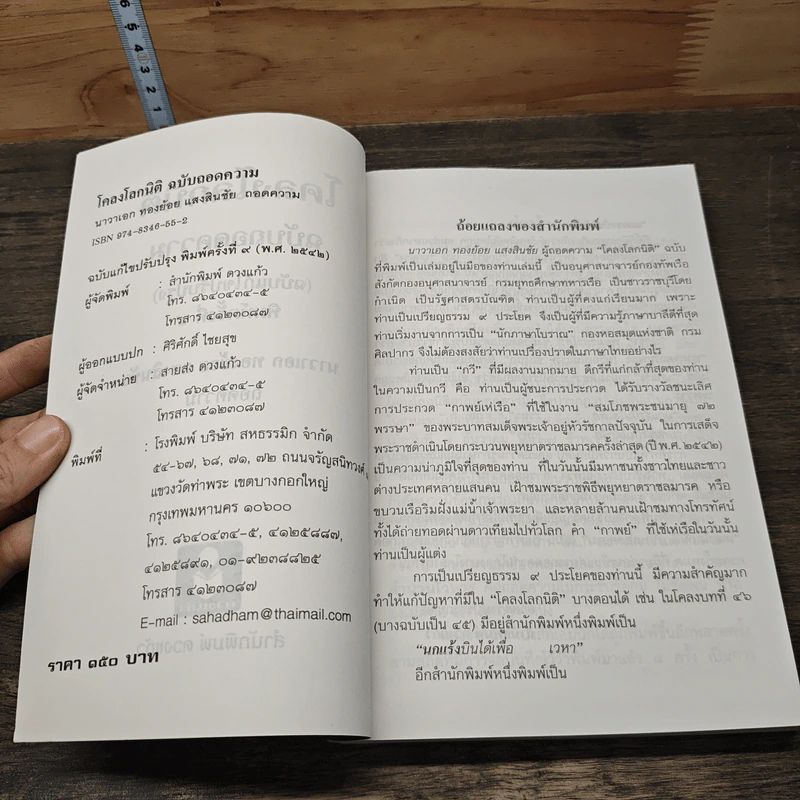 โคลงโลกนิติ ฉบับถอดความ
นาวาเอก ทองย้อย แสงสินชัย ถอดความ
ISBN 974-8346-55-2
ฉบับแก้ไขปรับปรุง พิมพ์ครั้งที่ ๙ (พ.ศ. ๒๕๔๒)
ผู้จัดพิมพ์ : สำนักพิมพ์ ดวงแก้ว
โทร. ๘๖๔๐๔๓๔-๕
โทรสาร ๔๑๒๓๐๘๗
ผู้ออกแบบปก : ศิริศักดิ์ ไชยสุข
ผู้จัดจำหน่าย : สายส่ง ดวงแก้ว
โทร. ๘๖๔๐๔๓๔-๕
โทรสาร ๔๑๒๓๐๘๗
พิมพ์ที่ : โรงพิมพ์ บริษัท สหธรรมิก จำกัด
๕๔-๖๗, ๖๘, ๗๑, ๗๒ ถนนจรัญสนิทวงศ์
แขวงวัดท่าพระ เขตบางกอกใหญ่
กรุงเทพมหานคร ๑๐๖๐๐
โทร. ๘๖๔๐๔๓๔-๕, ๔๑๒๕๘๘๗,
๔๑๒๕๘๙๑, ๐๑-๙๒๓๘๘๒๕
โทรสาร ๔๑๒๓๐๘๗
E-mail : sahadham@thaimail.com
ราคา ๑๕๐ บาท
ถ้อยแถลงของสำนักพิมพ์
นาวาเอก ทองย้อย แสงสินชัย ผู้ถอดความ “โคลงโลกนิติ” ฉบับ
ที่พิมพ์เป็นเล่มอยู่ในมือของท่านเล่มนี้ เป็นอนุศาสนาจารย์กองทัพเรือ
สังกัดกองอนุศาสนาจารย์ กรมยุทธศึกษาทหารเรือ เป็นชาวราชบุรีโดย
กำเนิด เป็นรัฐศาสตรบัณฑิต ท่านเป็นผู้ที่คงแก่เรียนมาก เพราะ
ท่านเป็นเปรียญธรรม ๙ ประโยค จึงเป็นผู้ที่มีความรู้ภาษาบาลีดีที่สุด
ท่านเริ่มงานจากการเป็น “นักภาษาโบราณ” กองหอสมุดแห่งชาติ กรม
ศิลปากร จึงไม่ต้องสงสัยว่าท่านเปรื่องปราดในภาษาไทยอย่างไร
ท่านเป็น “กวี” ที่มีผลงานมากมาย ดีกรีที่แก่กล้าที่สุดของท่าน
ในความเป็นกวี คือ ท่านเป็นผู้ชนะการประกวด ได้รับรางวัลชนะเลิศ
การประกวด “กาพย์เห่เรือ” ที่ใช้ในงาน “สมโภชพระชนมายุ ๗๒
พรรษา” ของพระบาทสมเด็จพระเจ้าอยู่หัวรัชกาลปัจจุบัน ในการเสด็จ
พระราชดำเนินโดยกระบวนพยุหยาตราชลมารคครั้งล่าสุด (ปี พ.ศ. ๒๕๔๒)
เป็นความน่าภูมิใจที่สุดของท่าน ที่ในวันนั้นมีมหาชนทั้งชาวไทยและชาว
ต่างประเทศหลายแสนคน เฝ้าชมพระราชพิธีพยุหยาตราชลมารค หรือ
ขบวนเรือริมฝั่งแม่น้ำเจ้าพระยา และหลายล้านคนเฝ้าชมทางโทรทัศน์
ทั้งได้ถ่ายทอดผ่านดาวเทียมไปทั่วโลก คำ “กาพย์” ที่ใช้เห่เรือในวันนั้น
ท่านเป็นผู้แต่ง
การเป็นเปรียญธรรม ๙ ประโยคของท่านนี้ มีความสำคัญมาก
ทำให้แก้ปัญหาที่มีใน “โคลงโลกนิติ” บางตอนได้ เช่น ในโคลงบทที่ ๔๖
(บางฉบับเป็น ๔๕) มีอยู่สำนักพิมพ์หนึ่งพิมพ์เป็น
“นกแร้งบินได้เพื่อ เวหา”
อีกสำนักพิมพ์หนึ่งพิมพ์เป็น